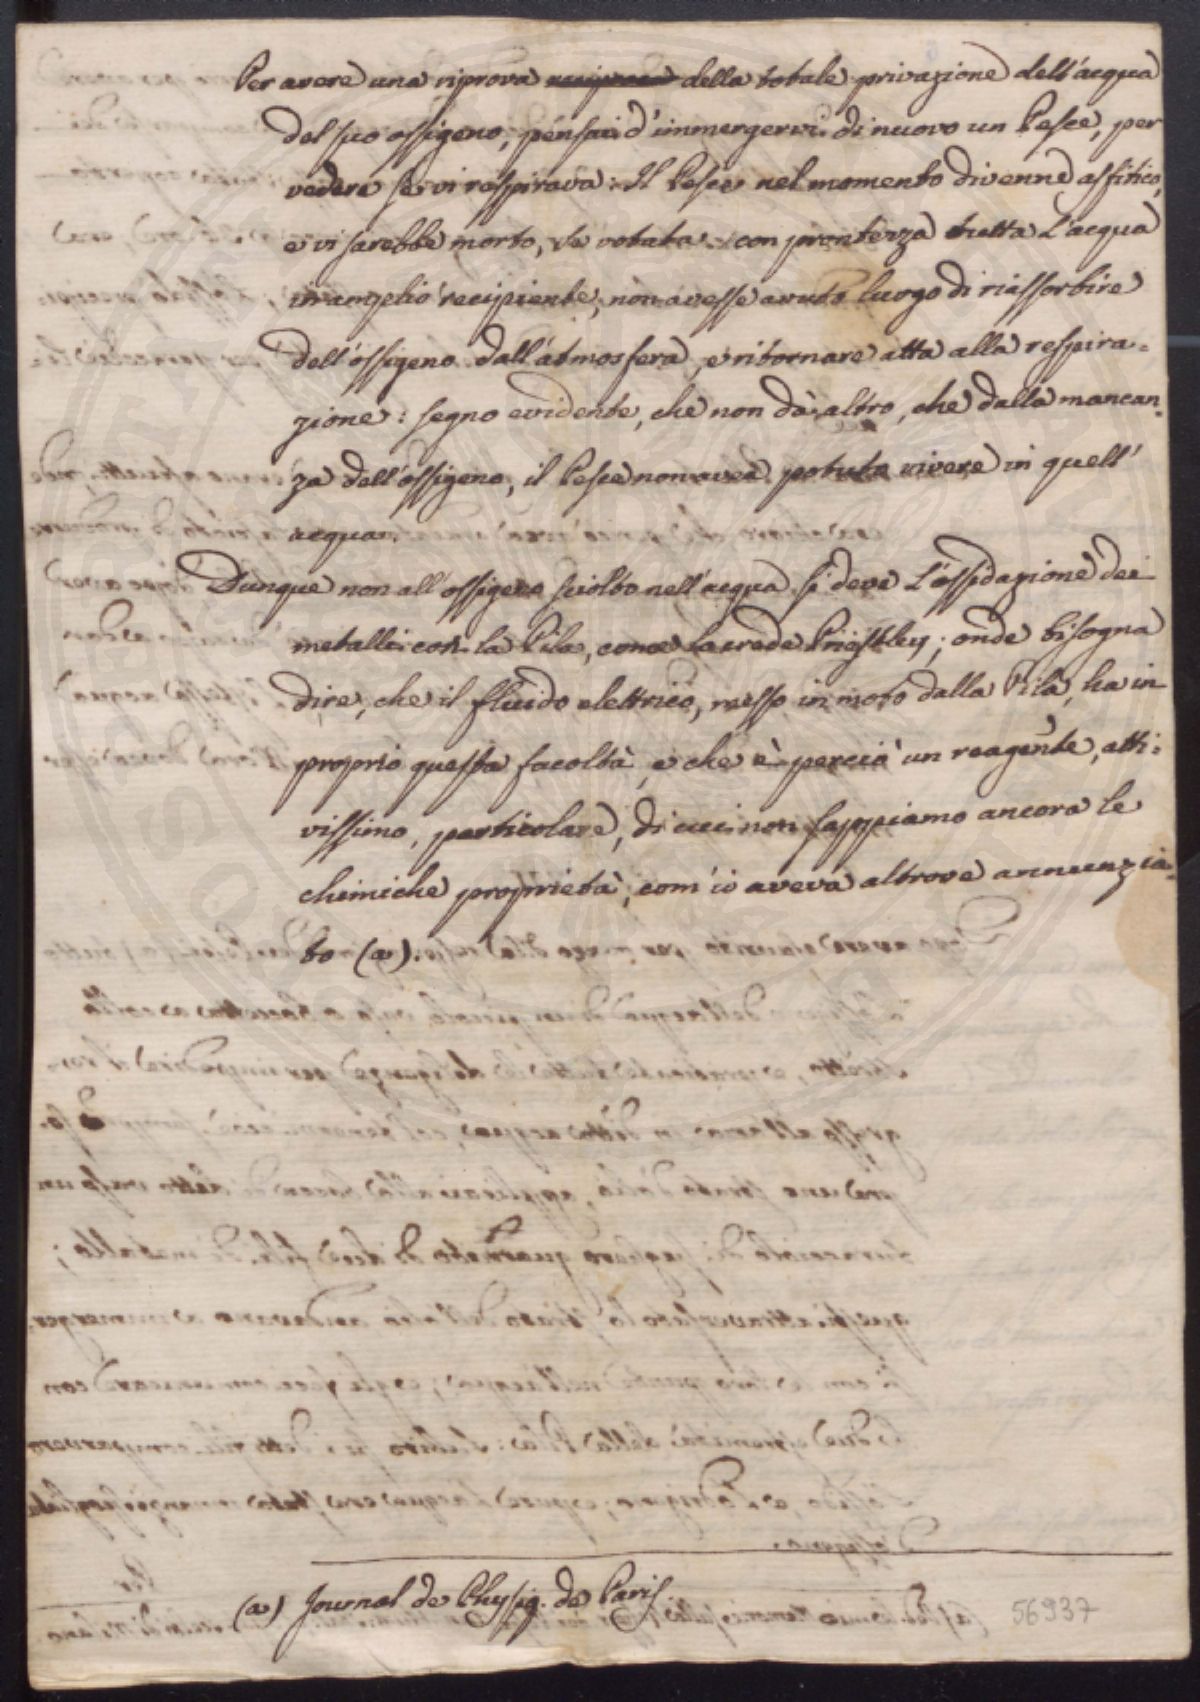 Per avere una riprova della totale privazione dell'acqua
del suo ossigeno, pensai d'immergervi di nuovo un Pesce, per
vedere se vi respirava: Il Pesce nel momento divenne asfitico,
e vi sarebbe morto, se votata con prontezza tutta l'acqua
in ampio recipiente, non avesse avuto luogo di riassorbire
dell'ossigeno dall'atmosfera, e ritornare atta alla respira-
zione: segno evidente, che non da altro, che dalla mancan-
za dell'ossigeno, il Pesce non avea potuto vivere in quell'
acqua.
Dunque non all'ossigeno sciolto nell'acqua si deve l'ossidazione dei
metalli con la Pila, come la crede Priestley; onde bisogna
dire, che il fluido elettrico, messo in moto dalla Pila, ha in
proprio questa facoltà, e che è perciò un reagente, atti-
vissimo, particolare, di cui non sappiamo ancora le
chimiche proprietà, com'io aveva altrove annunzia-
to (a).
(a) Journal de Physiq. de Paris
56937